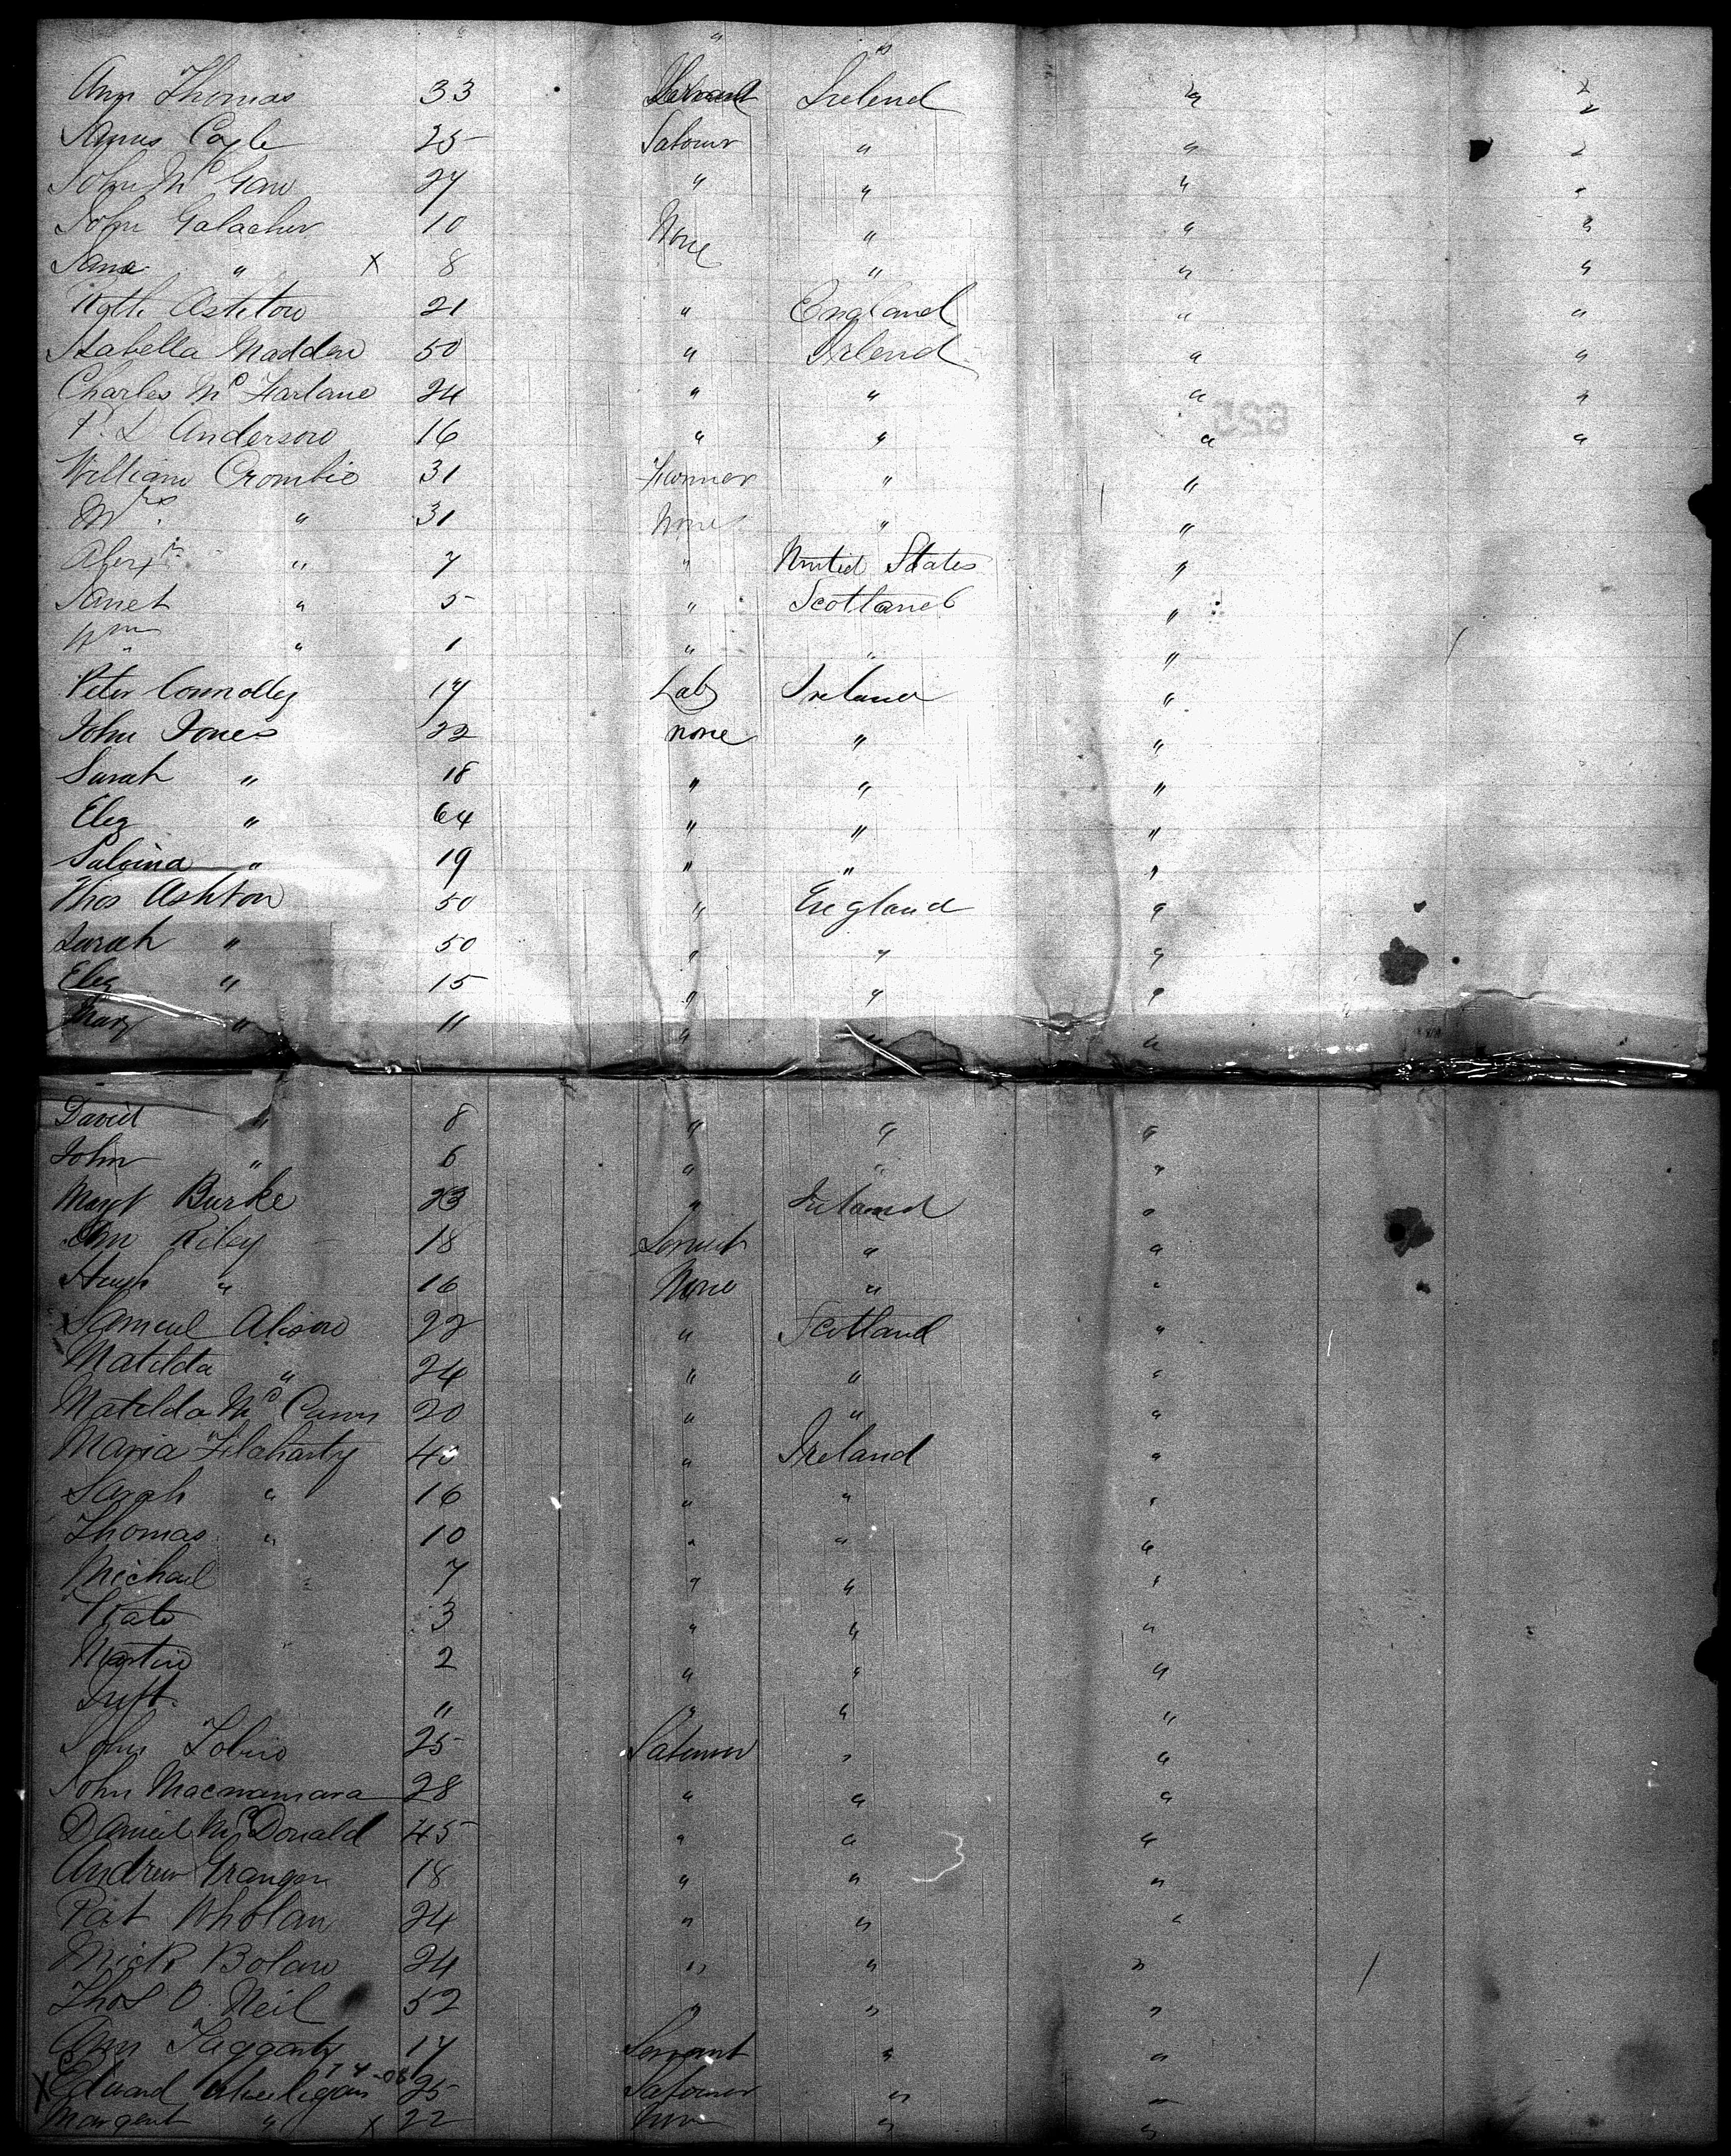 " " "
Ann Thomas 33 Servant Irelend " "
James Coyle 25 Labour " " "
John McGaw 27 " " " "
John Galacher 10 None " " "
Jane " X 8 " " "
Kath Ashton 21 " England " "
Isabella Madden 50 " Irlend " "
Charles McFarlane 24 " " " "
P. D Anderson 16 " " " "
William Crombie 31 Farmer " "
Mrs. " 31 None " "
Alexr. " 7 " United States "
Janet " 5 " Scotland "
Wm " 1 " " "
Peter Connolley 17 Lab Ireland "
John Jones 22 none " "
Sarah " 18 " " "
Eliz " 64 " " "
Salvina " 19 " " "
Thos Ashton 50 " England "
Sarah " 50 " " "
Eliz " 15 " " "
Mary " 11 " " "
David " 8 " " "
John " 6 " " "
Margt Burke 23 " Ireland "
Ann Riley 18 Servent " "
Hugh " 16 None " "
Samuel Alison 22 " Scotland "
Matilda " 24 " " "
Matilda McCann 20 " " "
Maria Flaharty 40 " Ireland "
Sarah " 16 " " "
Thomas " 10 " " "
Michael " 7 " " "
Kate 3 " " "
Martin " 2 " " "
Inft. " " " "
John Tobin 25 Labourer " "
John Macnamara 28 " " "
Daniel McDonald 45 " " "
Andrew Granger 18 " " "
Pat Wholan 24 " " "
Mick Bolan 24 " " "
Thos O. Neil 52 " " "
Ann Faggarty 17 Servant " "
X Edward Mulligan 25 Labour " "
Margent " X 22 " "